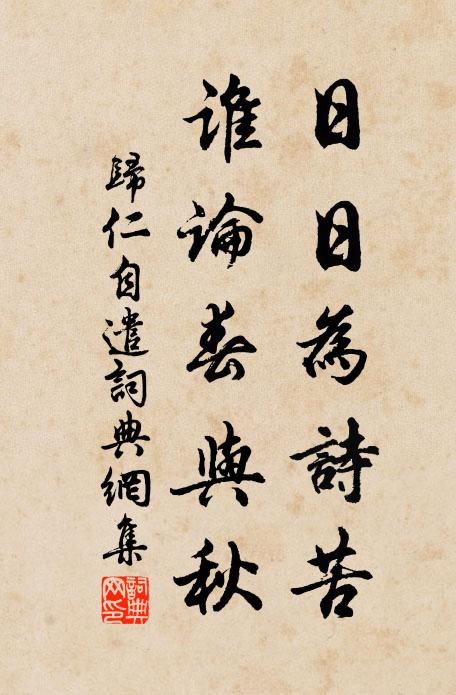 日日為詩苦
誰論春與秋
歸仁自遣詞典網集
詞典網印